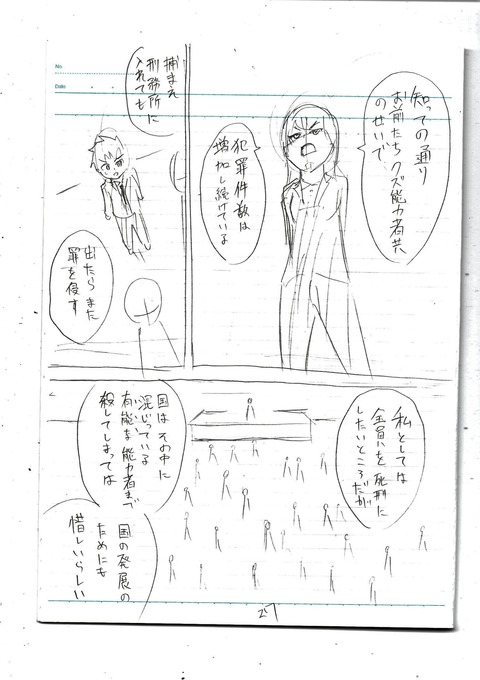 知っての通り
お前たちクズ能力者共
のせいで
犯罪件数は
増加し続けている
捕まえ
刑務所に
入れても
出たらまた
罪を侵す
私としては
全員を死刑に
したいところだが
国はその中に
混じっている
有能な能力者まで
殺してしまっては
国の発展の
ためにも
惜しいらしい
No.
Date
27